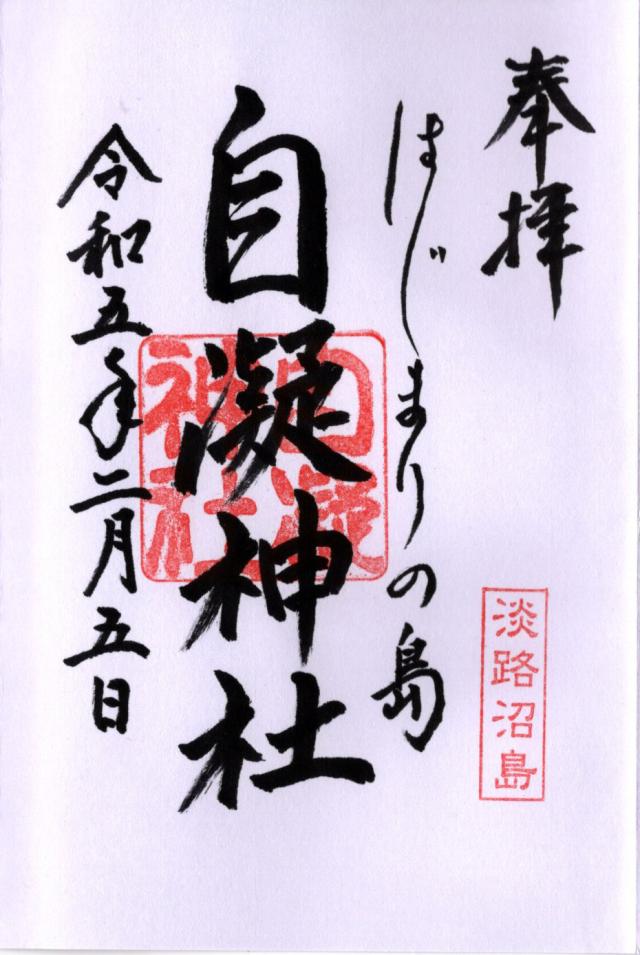 奉拝
はじまりの島
自凝神社
令和五年二月五日
自凝
神社
淡路沼島